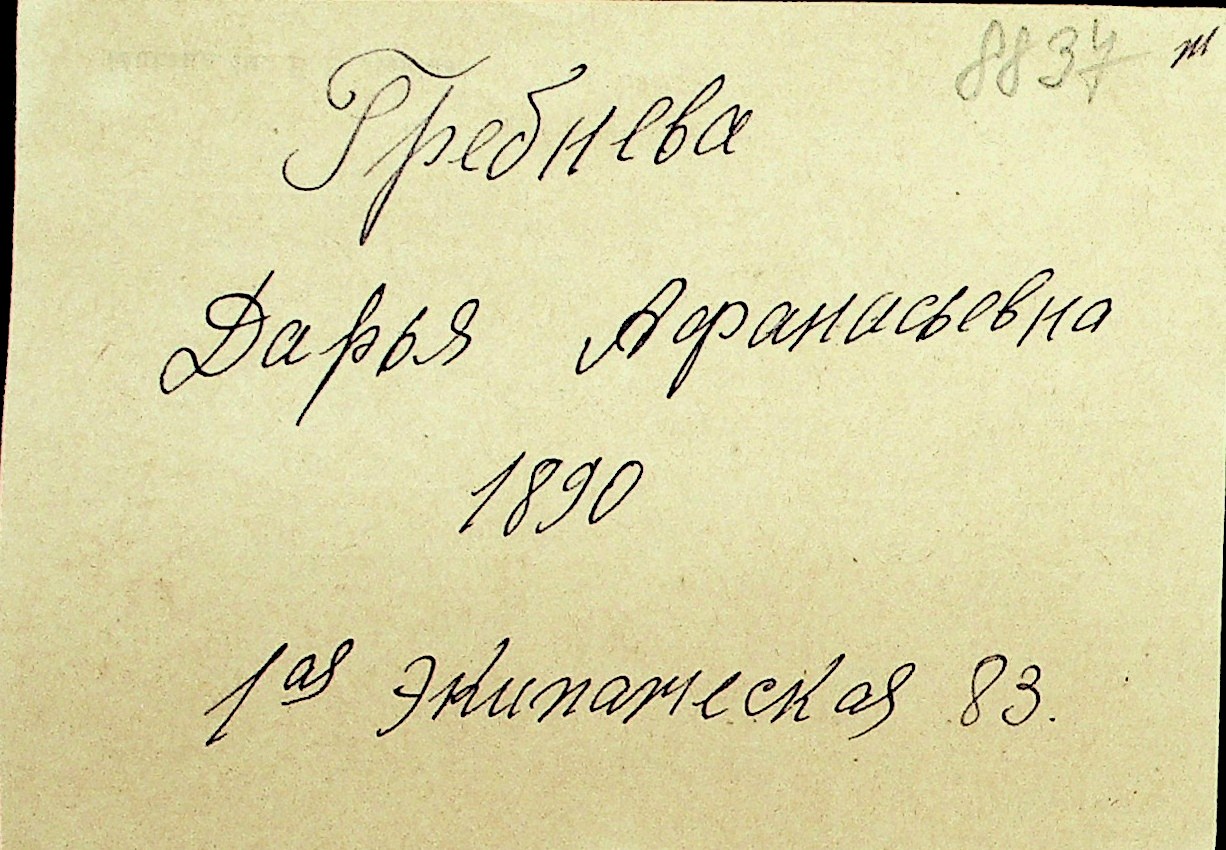 8837 т
Гребнева
Дарья Афанасьевна
1890
1ая Экипажеская 83.